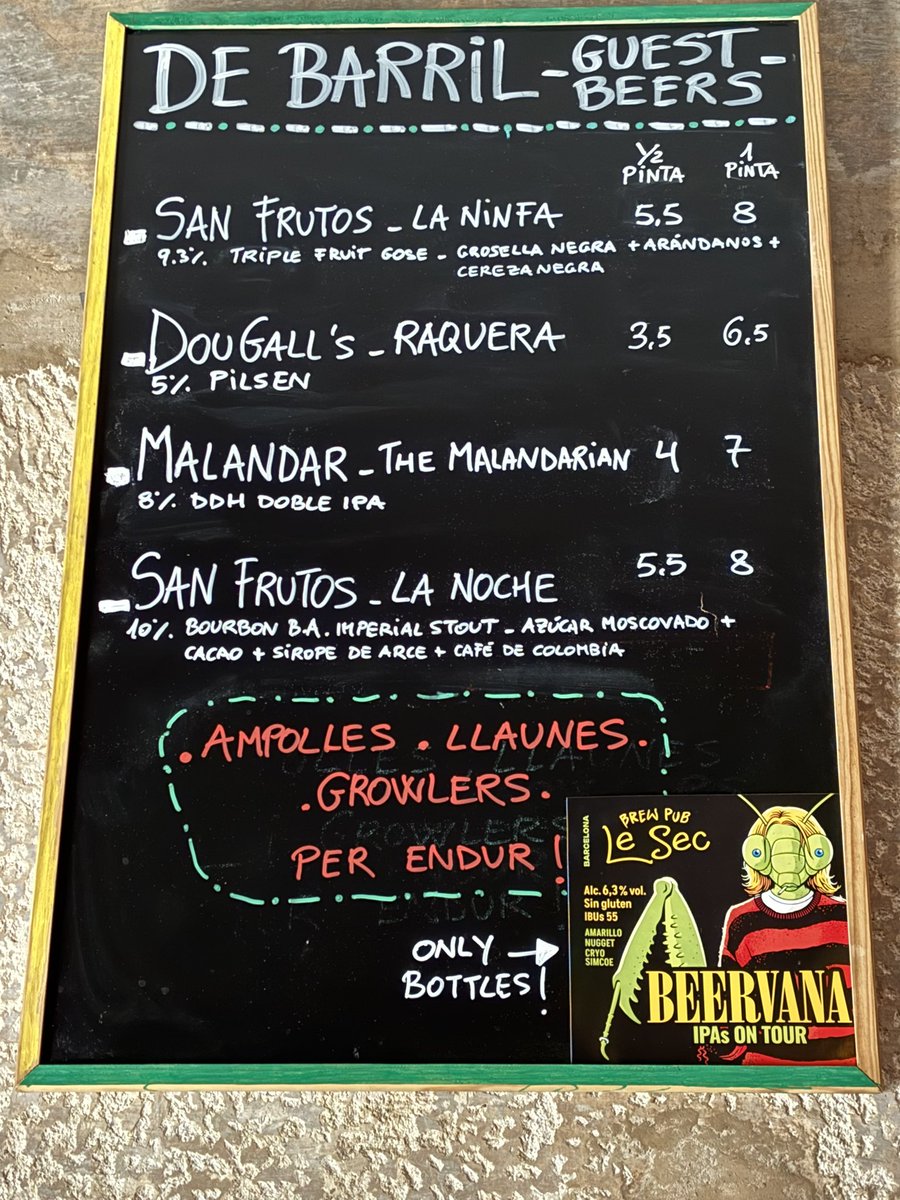 DE BARRIL - GUEST BEERS -
1/2 PINTA 1 PINTA
- SAN FRUTOS - LA NINFA 5,5 8
9.3% TRIPLE FRUIT GOSE - GROSELLA NEGRA + ARÁNDANOS +
CEREZA NEGRA
- DOUGALL'S - RAQUERA 3,5 6.5
5% PILSEN
- MALANDAR - THE MALANDARIAN 4 7
8% DDH DOBLE IPA
- SAN FRUTOS - LA NOCHE 5.5 8
10% BOURBON B.A. IMPERIAL STOUT - AZÚCAR MOSCOVADO +
CACAO + SIROPE DE ARCE + CAFÉ DE COLOMBIA
. AMPOLLES . LLAUNES .
. GROWLERS .
PER ENDUR !
ONLY →
BOTTLES!
BARCELONA
BREW PUB
Le Sec
Alc. 6,3 % vol.
Sin gluten
IBUs 55
AMARILLO
NUGGET
CRYO
SIMCOE
BEERVANA
IPAs ON TOUR